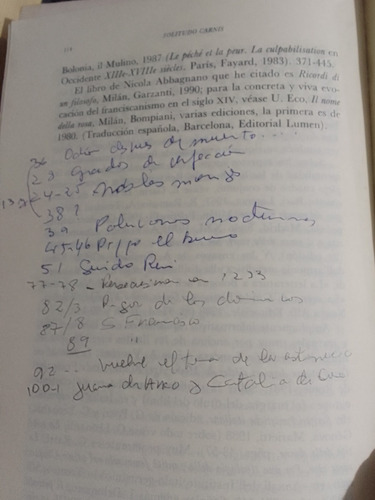 114 SOLITUDO CARNIS
Bolonia, il Mulino, 1987 (Le péché et la peur. La culpabilisation en
Occident XIIIe-XVIIIe siècles, Paris, Fayard, 1983). 371-445.
El libro de Nicola Abbagnano que he citado es Ricordi di
un filosofo, Milán, Garzanti, 1990; para la concreta y viva evo-
cación del franciscanismo en el siglo XIV, véase U. Eco, Il nome
della rosa, Milán, Bompiani, varias ediciones, la primera es de
1980. (Traducción española, Barcelona, Editorial Lumen).
36 Odio despues de muerto...
23 grados de
24-25 monjes
38?
39 Poluciones nocturnas
45-46 el
51 Guido Reni
77-78 - en 1233
82/3 de los dominicos
87/8 S. Francisco
89 "
92 .. vuelve el tema de la
100-1 Juana de Arco y Catalina de